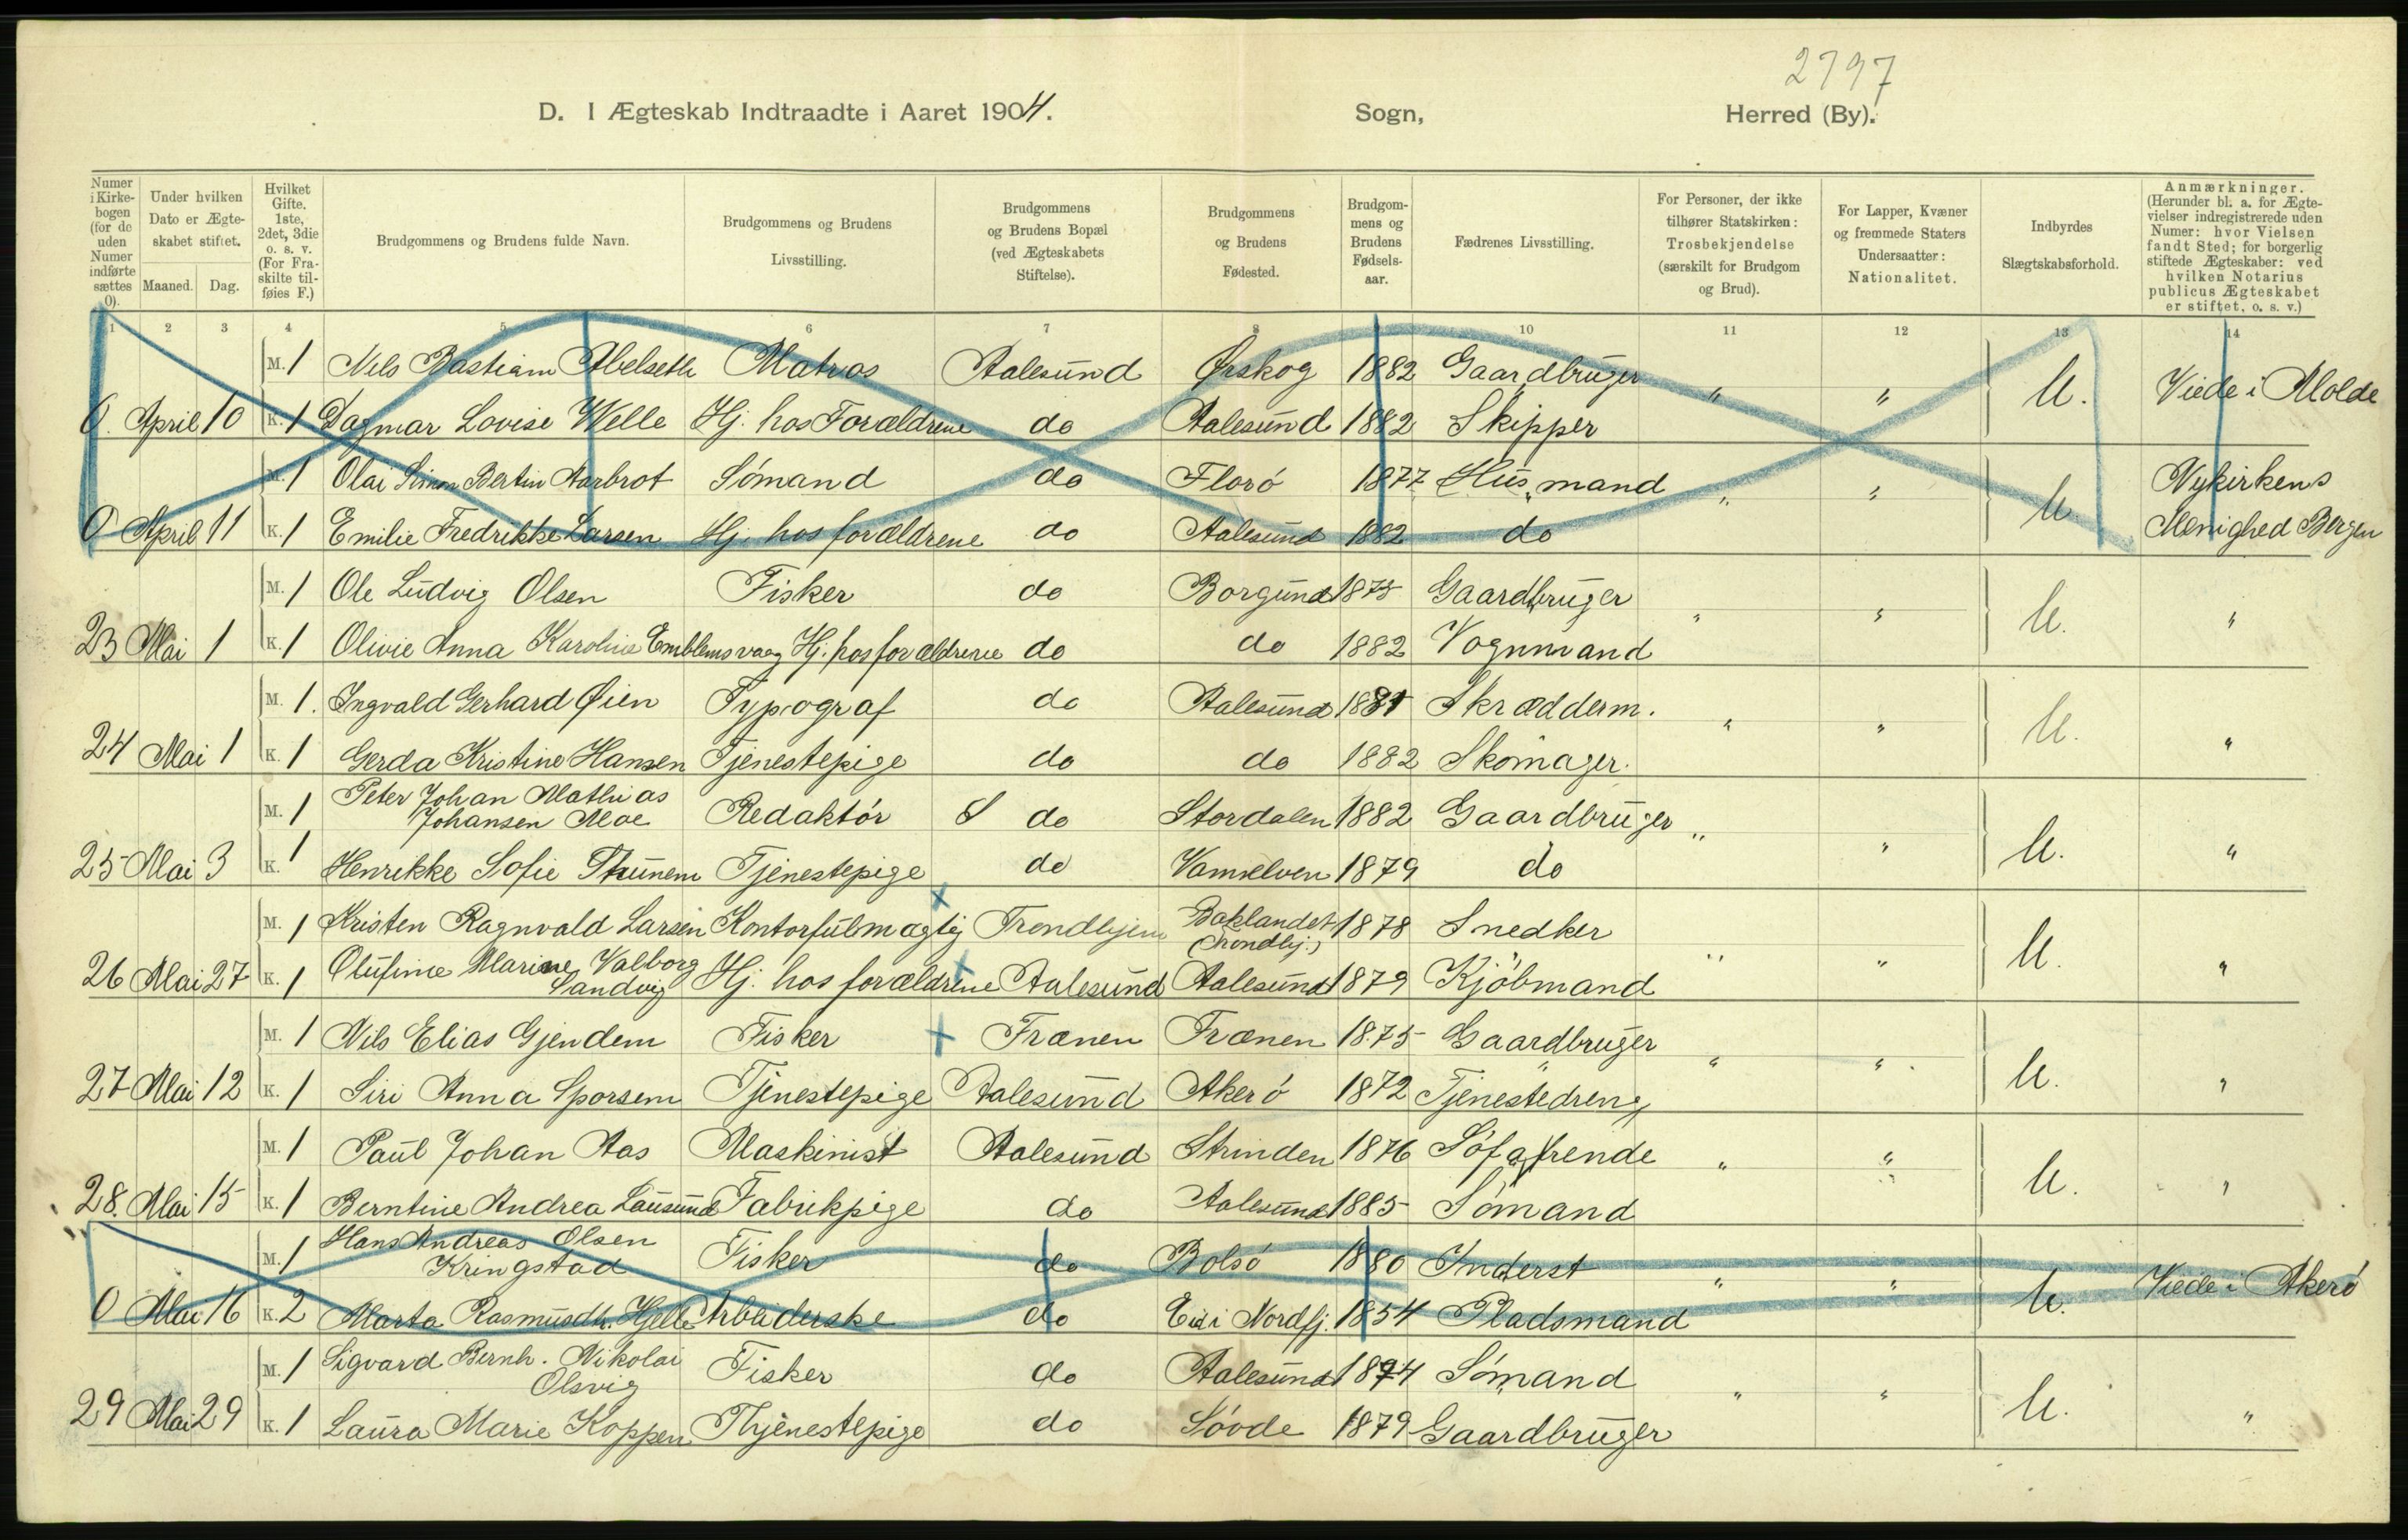 2797
D. I Ægteskab Indtraadte i Aaret 1904. Sogn, Herred (By).
Numer i Kirkebogen (for de uden Numer indførte sættes 0).
Under hvilken Dato er Ægteskabet stiftet.
Maaned. Dag.
Hvilket Gifte. 1ste, 2det, 3die o. s. v. (For Fraskilte tilføies F.)
Brudgommens og Brudens fulde Navn.
Brudgommens og Brudens Livsstilling.
Brudgommens og Brudens Bopæl (ved Ægteskabets Stiftelse).
Brudgommens og Brudens Fødested.
Brudgommens og Brudens Fødselsaar.
Fædrenes Livsstilling.
For Personer, der ikke tilhører Statskirken: Trosbekjendelse (særskilt for Brudgom og Brud).
For Lapper, Kvæner og fremmede Staters Undersaatter: Nationalitet.
Indbyrdes Slægtskabsforhold.
Anmærkninger. (Herunder bl. a. for Ægtevielser indregistrerede uden Numer: hvor Vielsen fandt Sted; for borgerlig stiftede Ægteskaber: ved hvilken Notarius publicus Ægteskabet er stiftet, o. s. v.)
1 2 3 4 5 6 7 8 9 10 11 12 13 14
M. 1 Nils Bastian Abelseth Matros Aalesund Ørskog 1882 Gaardbruger " " U. Viede i Molde
0. April 10 K. 1 Dagmar Lovise Welle Hj. hos Forældrene do Aalesund 1882 Skipper
M. 1 Olai Simon Bertin Aarbrot Sømand do Florø 1877 Husmand " " U Nykirkens
0 April 11 K. 1 Emilie Fredrikke Larsen Hj. hos forældrene do Aalesund 1882 do Menighed Bergen
M. 1 Ole Ludvig Olsen Fisker do Borgund 1875 Gaardbruger " " U. "
23 Mai 1 K. 1 Olivie Anna Karoline Emblemsvaag Hj. hos forældrene do do 1882 Vognmand
M. 1. Ingvald Gerhard Øien Typograf do Aalesund 1881 Skrædderm. " " U. "
24 Mai 1 K. 1 Gerda Kristine Hansen Tjenestepige do do 1882 Skomager.
M. 1 Peter Johan Mathias
Johansen Moe Redaktør do Stordalen 1882 Gaardbruger " " U. "
25 Mai 3 K. 1 Henrikke Sofie Thunem Tjenestepige do Vanelven 1879 do
M. 1 Kristen Ragnvald Larsen Kontorfulmægtig Trondhjem Baklandet
(Trondhj.) 1878 Snedker " " U. "
26 Mai 27 K. 1 Olufine Marine Valborg
Sandvig Hj. hos forældrene Aalesund Aalesund 1879 Kjøbmand
M. 1 Nils Elias Gjendem Fisker Frænen Frænen 1875 Gaardbruger " " U. "
27 Mai 12 K. 1 Siri Anna Sporsem Tjenestepige Aalesund Akerø 1872 Tjenestedreng
M. 1 Paul Johan Aas Maskinist Aalesund Strinden 1876 Søfarende " " U. "
28. Mai 15 K. 1 Berntine Andrea Lausund Fabrikpige do Aalesund 1885 Sømand
M. 1 Hans Andreas Olsen
Kringstad Fisker do Bolsø 1880 Inderst " " U. Viede i Akerø
0 Mai 16 K. 2 Marta Rasmusdtr. Hjelle Arbeiderske do Eid i Nordfj. 1854 Pladsmand
M. 1 Sigvard Bernh. Nikolai
Olsvig Fisker do Aalesund 1874 Sømand " " U. "
29 Mai 29 K. 1 Laura Marie Koppen Thjenestepige do Søvde 1879 Gaardbruger